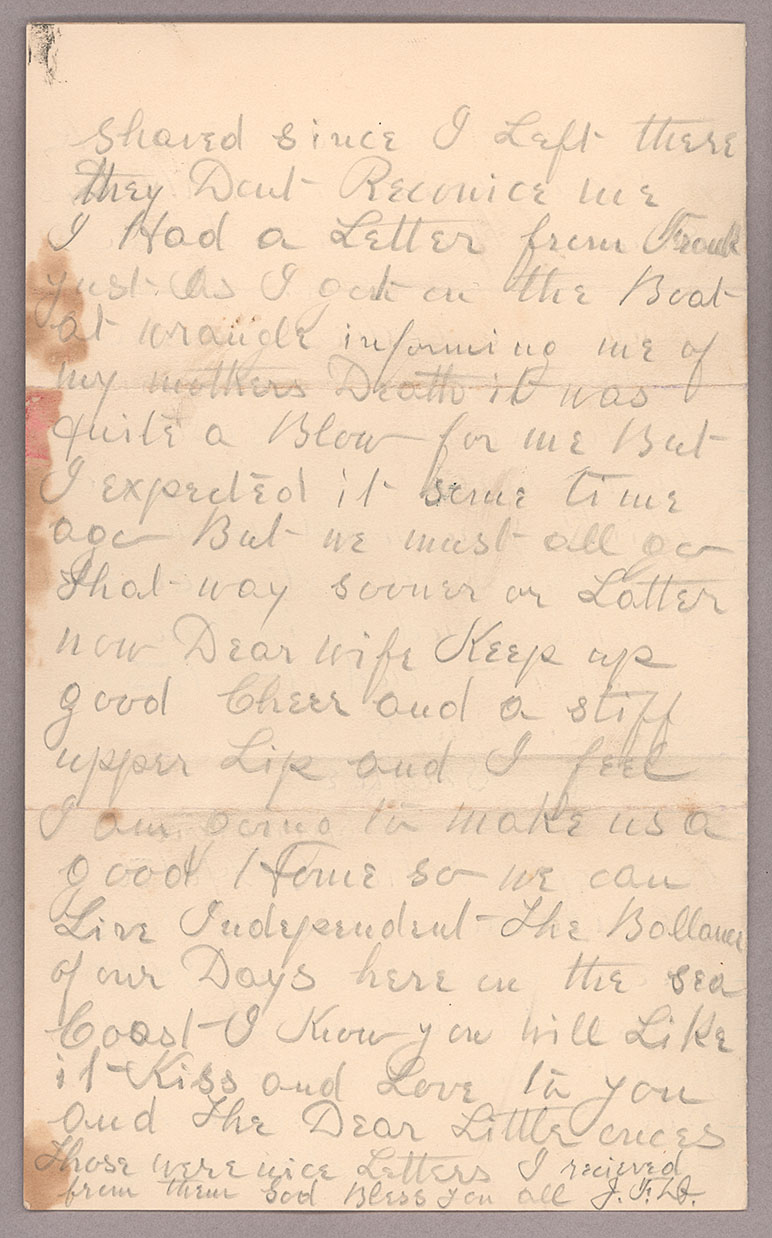 Shaved since I Left there
they Dont Reconice me
I Had a Letter from Frank
just as I got on the Boat
at wrangle informing me of
my mothers Death it was
quite a Blow for me But
I expected it some time
ago But we must all go
that way sooner or Latter
now Dear wife Keep up
good Cheer and a stiff
upper Lip and I feel
I am going to make us a
good Home so we can
Live Independent The Ballance
of our Days here on the sea
Coast I Know you will Like
it Kiss and Love to you
and The Dear Little onces
Those were nice Letters I recieved
from them God Bless you all J. F. D.